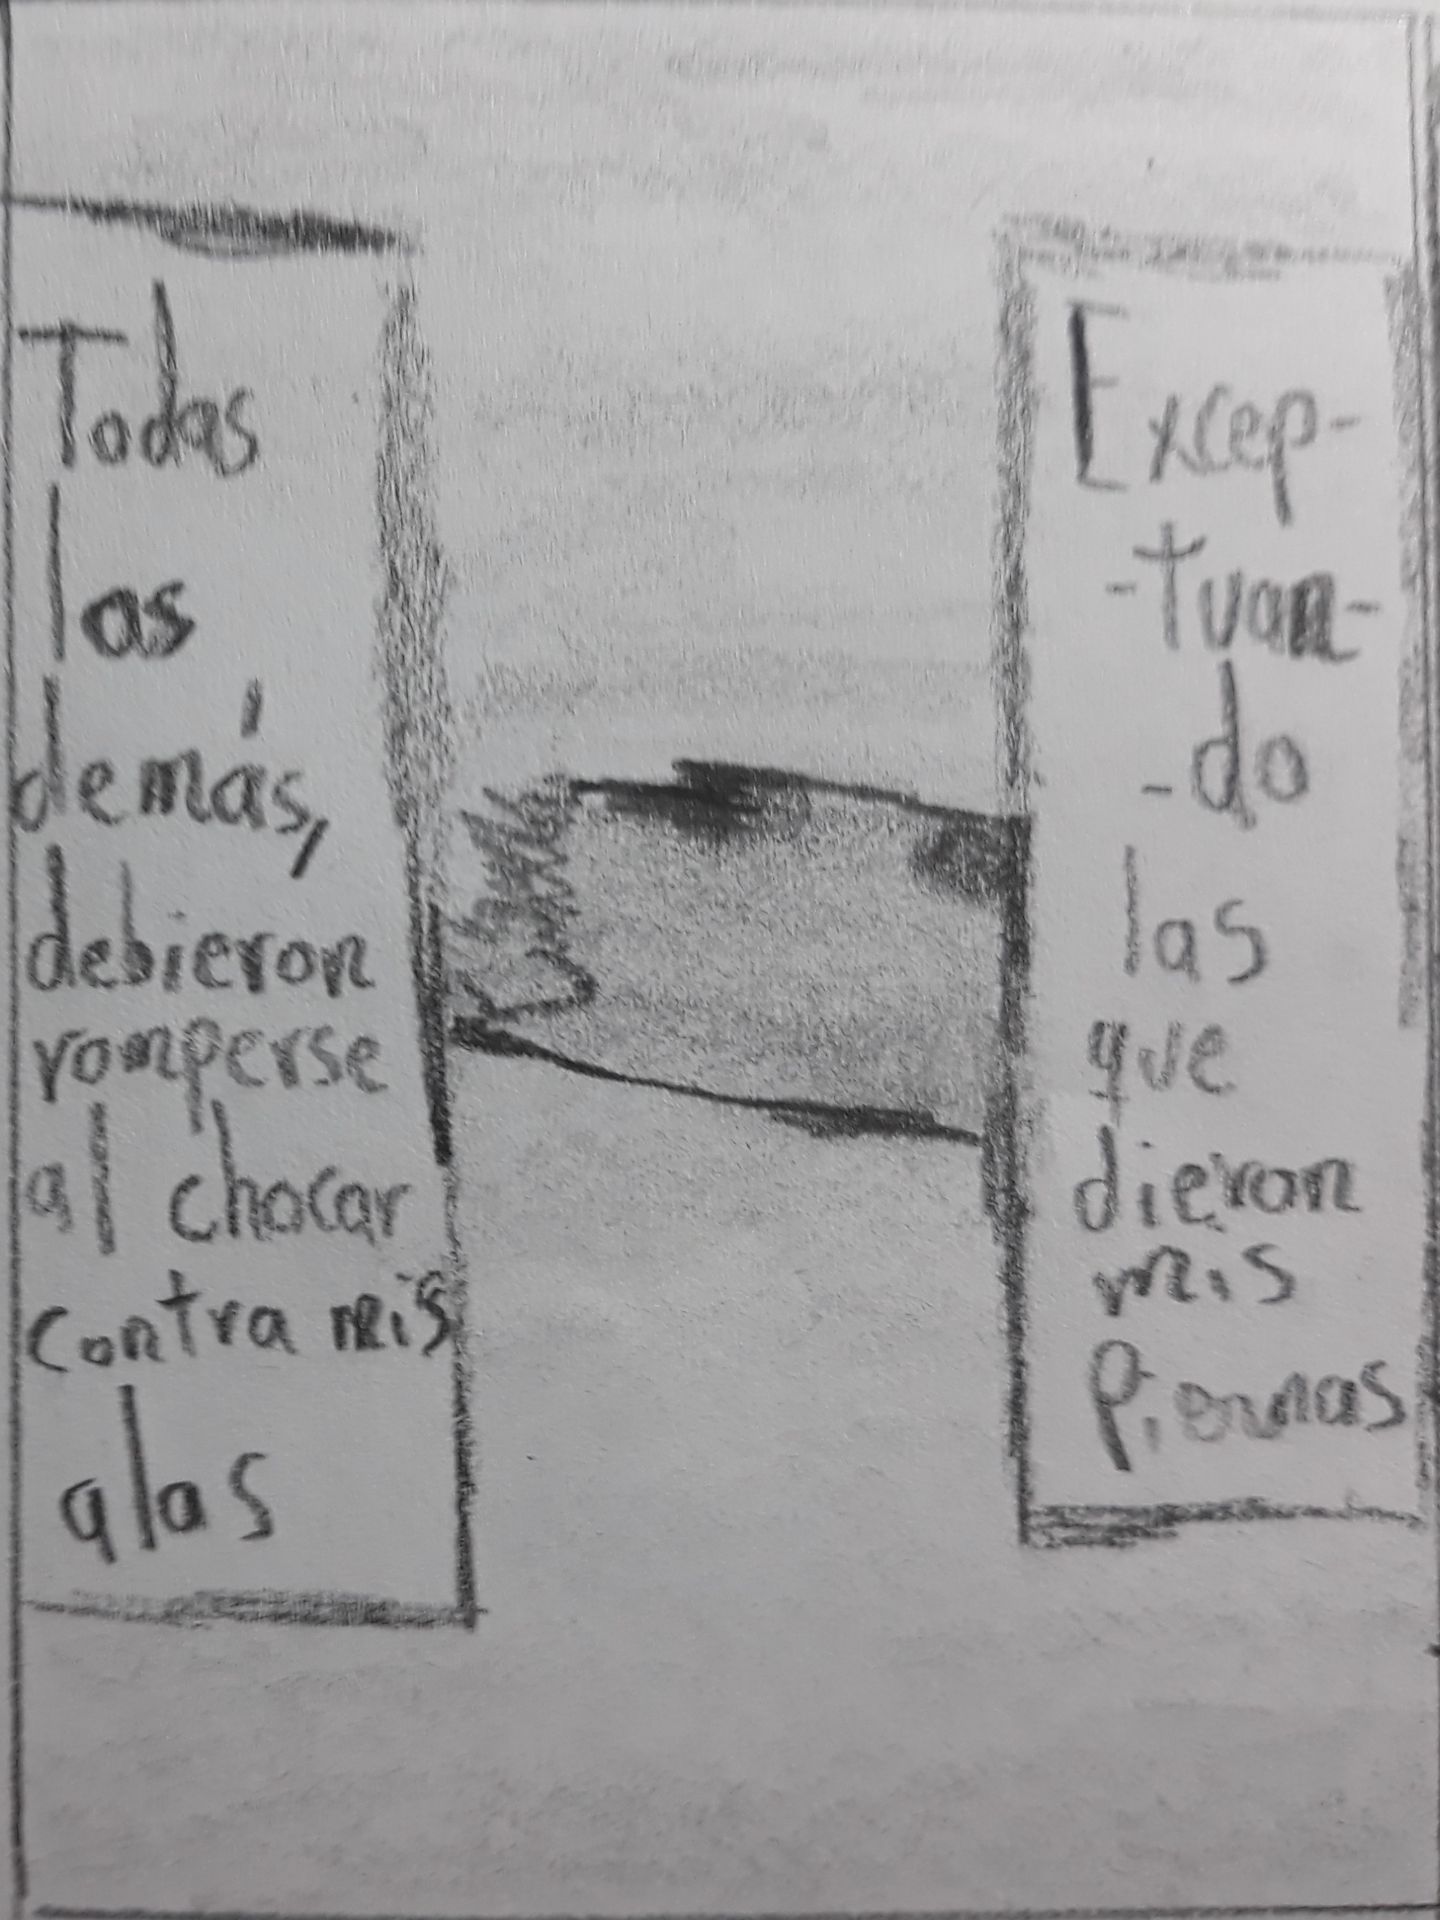 Todas
las
demás,
debieron
romperse
al chocar
contra mis
alas
Excep-
-tuan-
-do
las
que
dieron
mis
Piernas